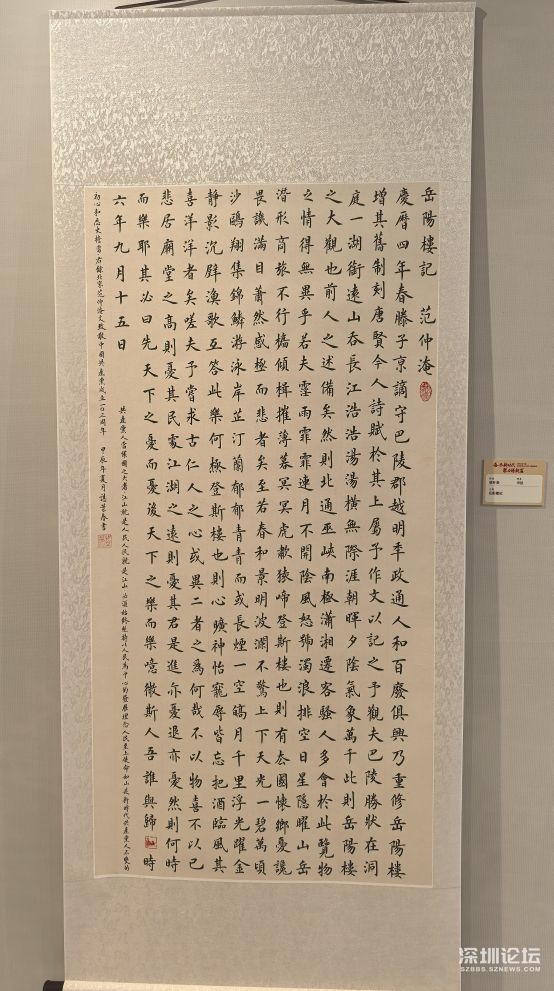 岳陽樓記 范仲淹
慶曆四年春滕子京謫守巴陵郡越明年政通人和百廢俱興乃重修岳陽樓
增其舊制刻唐賢今人詩賦於其上屬予作文以記之予觀夫巴陵勝狀在洞
庭一湖銜遠山吞長江浩浩湯湯橫無際涯朝暉夕陰氣象萬千此則岳陽樓
之大觀也前人之述備矣然則北通巫峽南極瀟湘遷客騷人多會於此覽物
之情得無異乎若夫霪雨霏霏連月不開陰風怒號濁浪排空日星隱曜山岳
潛形商旅不行檣傾楫摧薄暮冥冥虎嘯猿啼登斯樓也則有去國懷鄉憂讒
畏譏滿目蕭然感極而悲者矣至若春和景明波瀾不驚上下天光一碧萬頃
沙鷗翔集錦鱗游泳岸芷汀蘭郁郁青青而或長煙一空皓月千里浮光躍金
靜影沉璧漁歌互答此樂何極登斯樓也則心曠神怡寵辱皆忘把酒臨風其
喜洋洋者矣嗟夫予嘗求古仁人之心或異二者之為何哉不以物喜不以己
悲居廟堂之高則憂其民處江湖之遠則憂其君是進亦憂退亦憂然則何時
而樂耶其必曰先天下之憂而憂後天下之樂而樂噫微斯人吾誰與歸 時
六年九月十五日
共產黨人當懷國之大者江山就是人民人民就是江山必須始終堅持以人民為中心的發展理念人民至上使命如山是新時代共產黨人不變的
初心和歷史擔當右錄北宋范仲淹文致敬中國共產黨成立一百三周年 甲辰年夏月 春書
深圳论坛
SZBBS.SZNEWS.COM